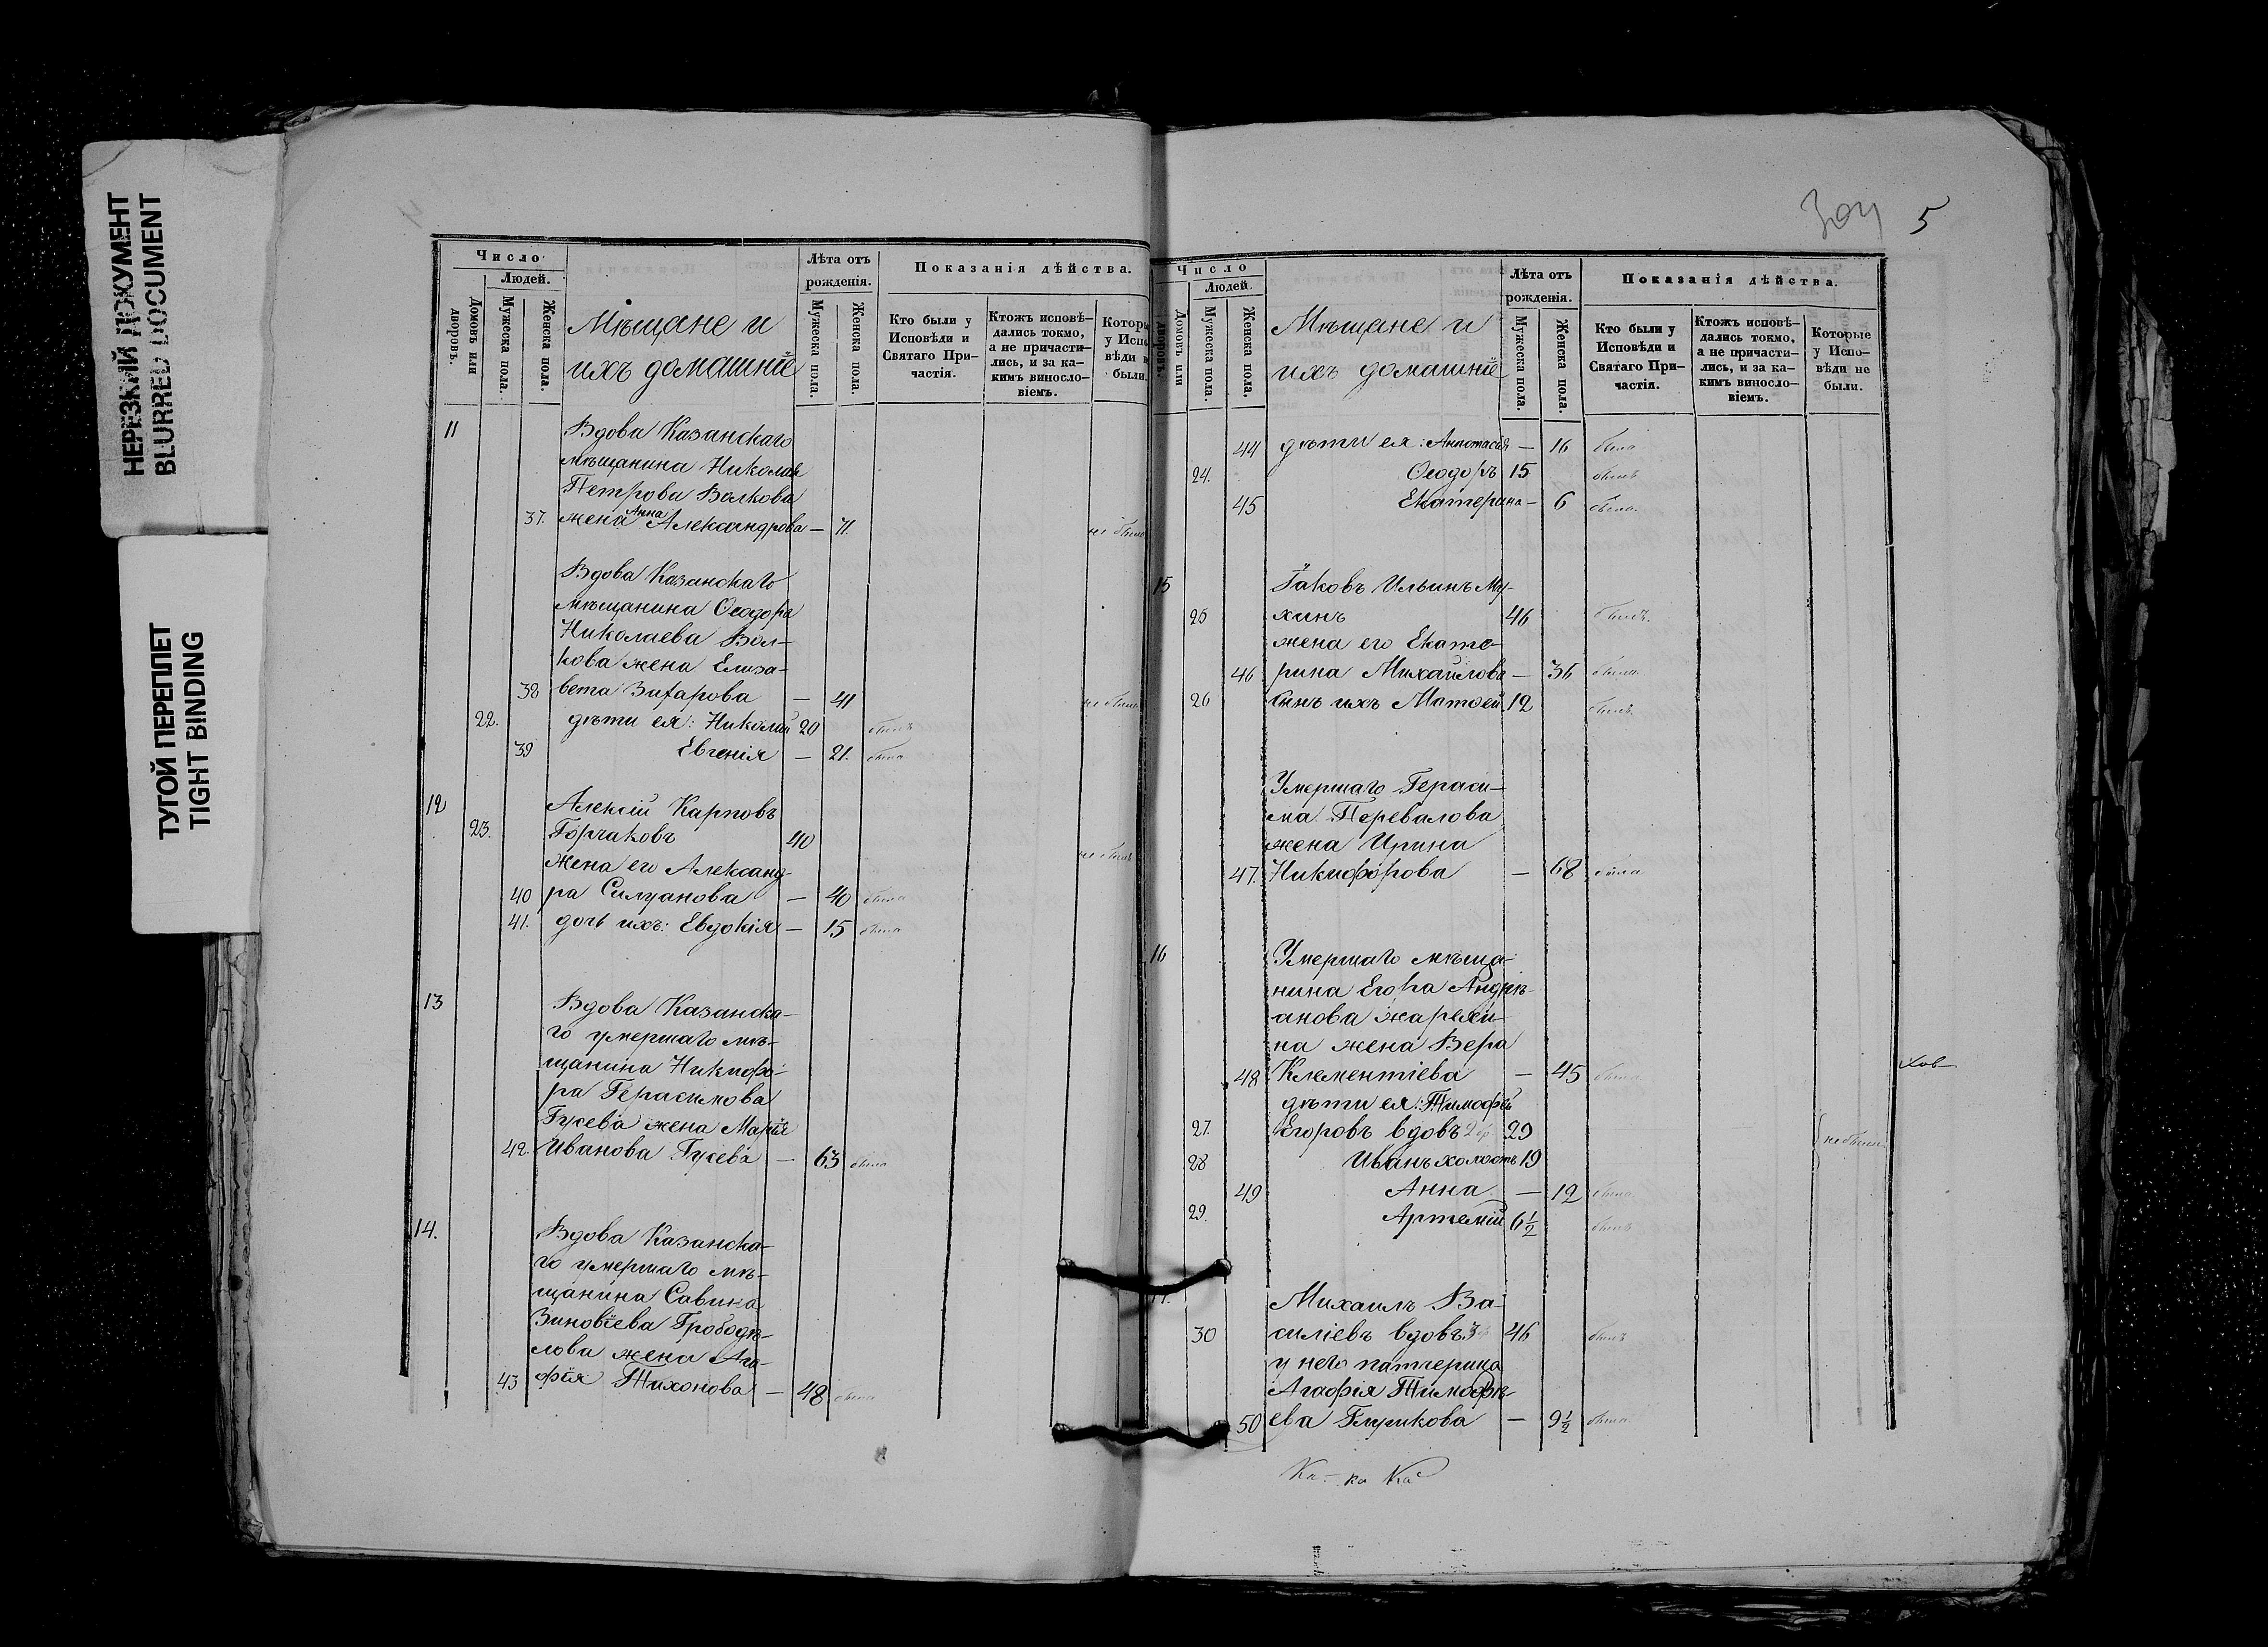 НЕРЕЗКИЙ ДОКУМЕНТ
BLURRED DOCUMENT
ТУГОЙ ПЕРЕПЛЕТ
TIGHT BINDING
Число
Людей.
Домовъ или дворовъ.
Мужеска пола.
Женска пола.
Мѣщане и
ихъ домашніе
Лѣта отъ
рожденія.
Мужеска пола.
Женска пола.
Показанія дѣйства.
Кто были у
Исповѣди и
Святаго При-
частія.
Ктожъ исповѣ-
дались токмо,
а не причасти-
лись, и за ка-
кимъ винosло-
віемъ.
Которы
у Испо
вѣди н
были.
11 Вдова Казанскаго
мѣщанина Николая
Петрова Волкова
37. жена Анна Александрова — 71. не была
Вдова Казанскаго
мѣщанина Ѳеодора
Николаева Вол-
кова жена Елиза-
38 вета Захарова — 41 не была
22. дѣти ея: Николай 20 былъ
39 Евгенія — 21. была
12 Алексій Карповъ
23. Горчаковъ 40 не былъ
жена его Александ-
40 ра Силуанова — 40 была
41. дочь ихъ: Евдокія — 15 была
13 Вдова Казанска-
го умершаго мѣ-
щанина Никифо-
ра Герасимова
Гусева жена Марія
42. Иванова Гусева — 63 была
14. Вдова Казанска-
го умершаго мѣ-
щанина Савина
Зиновіева Грободѣ-
лова жена Ага-
43 фія Тихонова — 48 была
5
Число
Людей.
Домовъ или дворовъ.
Мужеска пола.
Женска пола.
Мѣщане и
ихъ домашніе
Лѣта отъ
рожденія.
Мужеска пола.
Женска пола.
Показанія дѣйства.
Кто были у
Исповѣди и
Святаго При-
частія.
Ктожъ исповѣ-
дались токмо,
а не причасти-
лись, и за ка-
кимъ виносло-
віемъ.
Которые
у Испо-
вѣди не
были.
44 дѣти ея: — 16 была
24. Ѳеодоръ 15 былъ
45 Екатерина — 6 была.
15 Іаковъ Ильинъ Му-
25 хинъ 46 былъ.
жена его Екате-
46 рина Михайлова — 36 была
26 сынъ ихъ Матѳей 12 былъ.
Умершаго Гераси-
ма Перевалова
жена Ирина
47. Никифорова — 68 была
16 Умершаго мѣща-
нина Егора Андрі-
анова
на жена Вера
48 Клементіева — 45 была
дѣти ея: Тимофей
27. Егоровъ вдовъ 29 не были
28 Иванъ холостъ 19
49 Анна — 12 была
29. Артемій 6 1/2 былъ
17. Михаилъ Ва-
30 силіевъ вдовъ 46 былъ
у него
Агафія Тимофѣ-
50 ева — 9 1/2 была